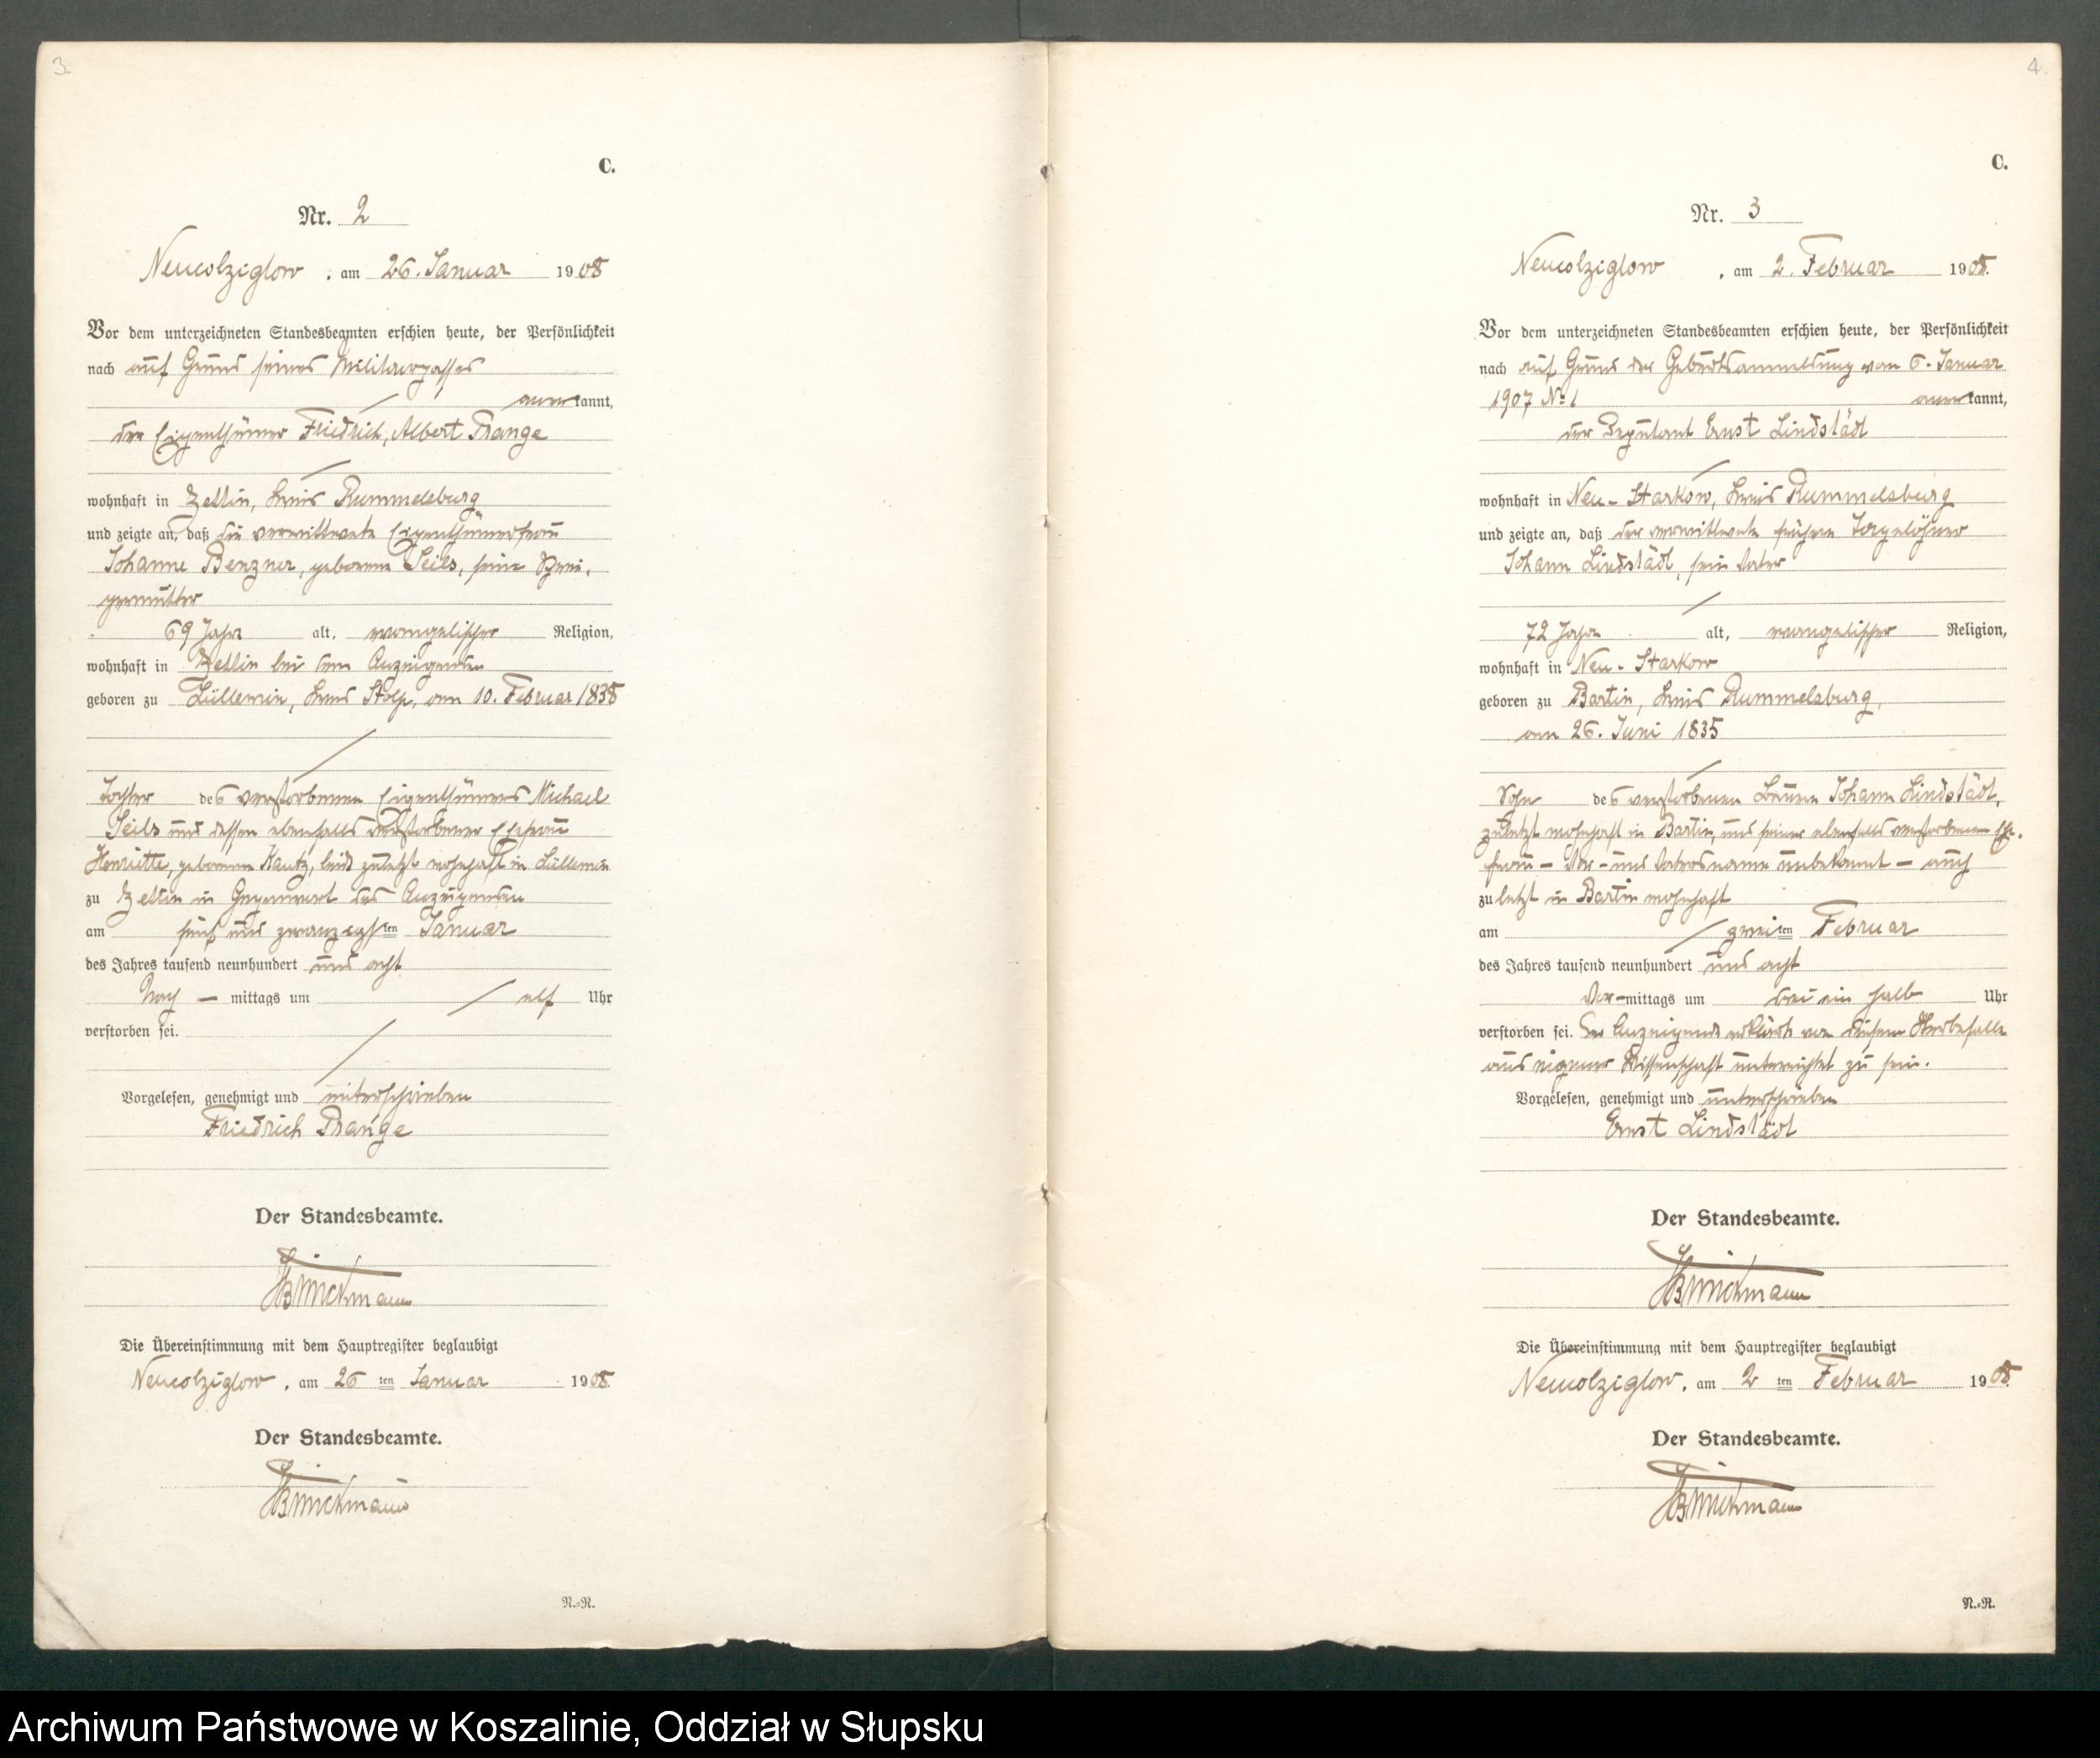 3.
C.
Nr. 2
Neucolziglow, am 26. Januar 1908
Vor dem unterzeichneten Standesbeamten erschien heute, der Persönlichkeit
nach auf Grund seines Militairpasses
anerkannt,
der Eigenthümer Friedrich, Albert Prange
wohnhaft in Zettin, Kreis Rummelsburg
und zeigte an, daß die verwittwete Eigenthümerfrau
Johanne Benzner, geborene Seils, seine Schwie-
germutter
69 Jahre alt, evangelischer Religion,
wohnhaft in Zettin bei dem Anzeigenden
geboren zu Lüllemin, Kreis Stolp, am 10. Februar 1838
Tochter des verstorbenen Eigenthümers Michael
Seils und dessen ebenfalls verstorbener Ehefrau
Henriette, geborenen Kautz, beide zuletzt wohnhaft in Lüllemin
zu Zettin in Gegenwart des Anzeigenden
am fünf und zwanzigsten Januar
des Jahres tausend neunhundert und acht
Nach- mittags um elf Uhr
verstorben sei.
Vorgelesen, genehmigt und unterschrieben
Friedrich Prange
Der Standesbeamte.
Brinckmann
Die Übereinstimmung mit dem Hauptregister beglaubigt
Neucolziglow, am 26 ten Januar 1908
Der Standesbeamte.
Brinckmann
N.-R.
4.
C.
Nr. 3
Neucolziglow, am 2. Februar 1908.
Vor dem unterzeichneten Standesbeamten erschien heute, der Persönlichkeit
nach auf Grund der Geburtsanmeldung vom 6. Januar
1907 No 1 anerkannt,
der Deputant Ernst Lindstädt
wohnhaft in Neu-Starkow, Kreis Rummelsburg
und zeigte an, daß der verwittwete frühere Tagelöhner
Johann Lindstädt, sein Vater
72 Jahre alt, evangelischer Religion,
wohnhaft in Neu-Starkow
geboren zu Bartin, Kreis Rummelsburg,
am 26. Juni 1835
Sohn des verstorbenen Bauern Johann Lindstädt,
zuletzt wohnhaft in Bartin, und seiner ebenfalls verstorbenen Ehe-
frau - Vor- und Vatersname unbekannt - auch
zuletzt in Bartin wohnhaft
am zweiten Februar
des Jahres tausend neunhundert und acht
Vor-mittags um drei ein halb Uhr
verstorben sei. Der Anzeigende erklärte von diesem Sterbefalle
aus eigener Wissenschaft unterrichtet zu sein.
Vorgelesen, genehmigt und unterschrieben
Ernst Lindstädt
Der Standesbeamte.
Brinckmann
Die Übereinstimmung mit dem Hauptregister beglaubigt
Neucolziglow, am 2 ten Februar 1908.
Der Standesbeamte.
Brinckmann
N.-R.
Archiwum Państwowe w Koszalinie, Oddział w Słupsku